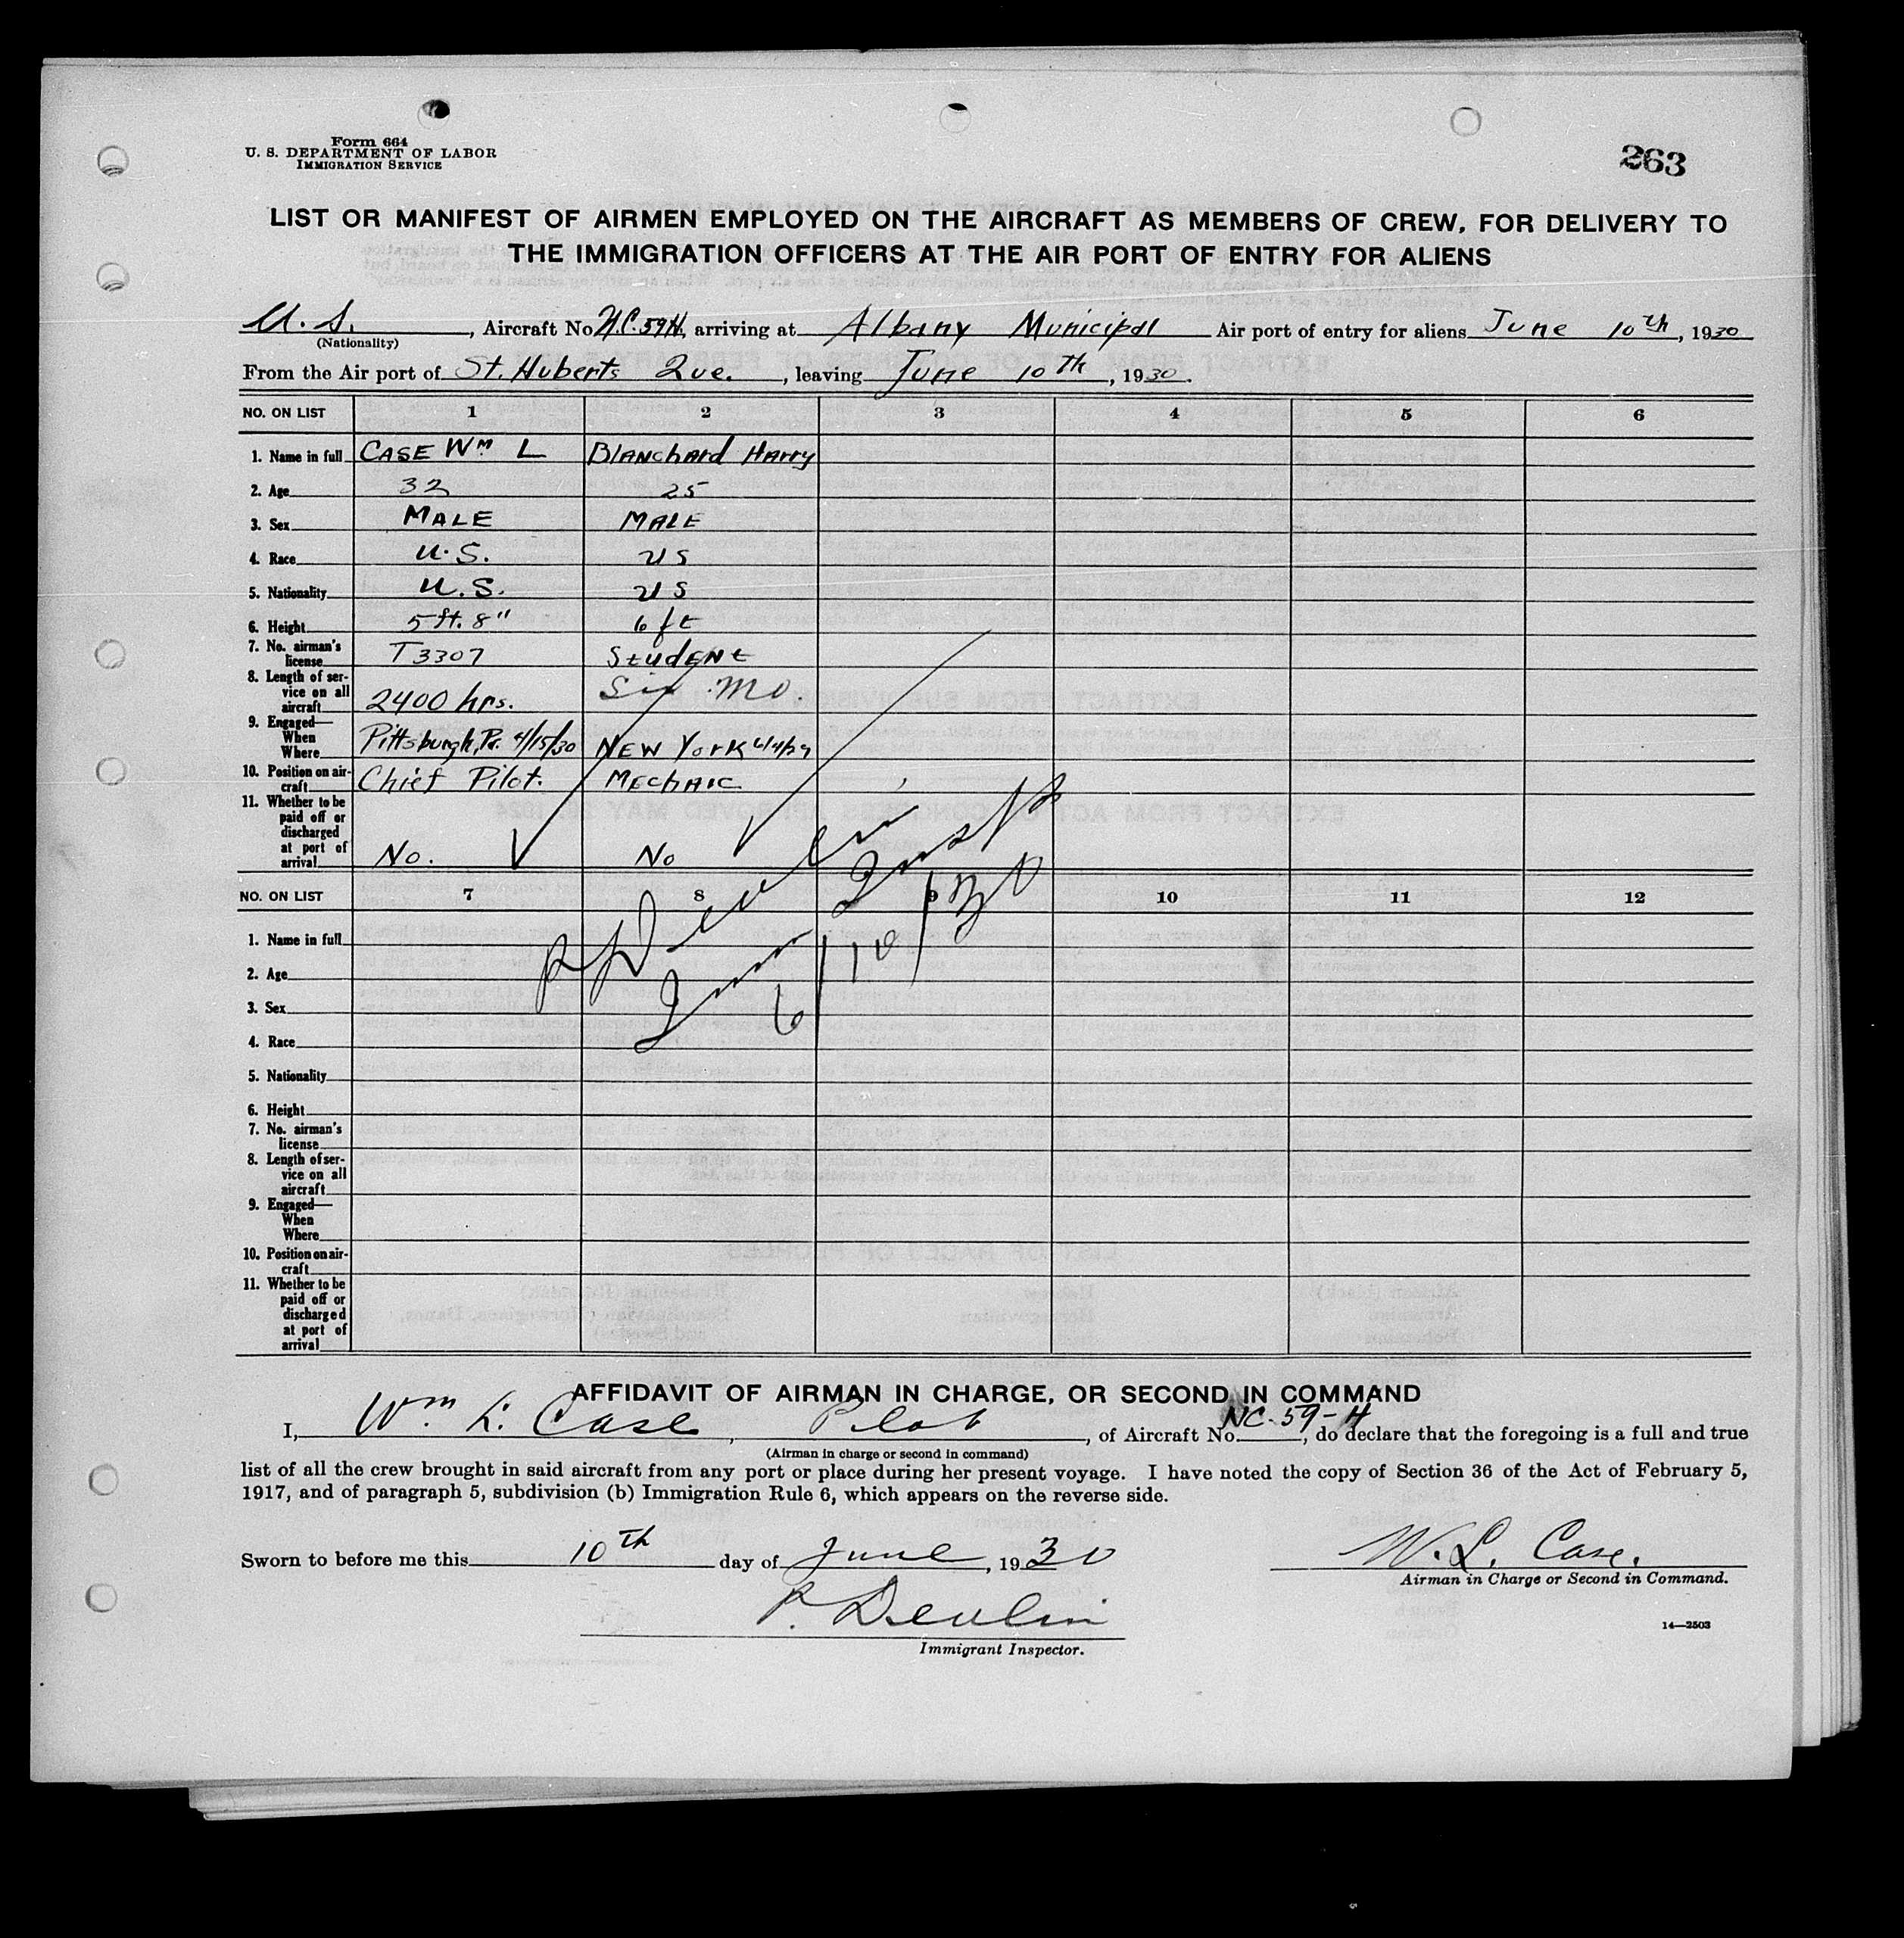 Form 664
U. S. DEPARTMENT OF LABOR
IMMIGRATION SERVICE
263
LIST OR MANIFEST OF AIRMEN EMPLOYED ON THE AIRCRAFT AS MEMBERS OF CREW, FOR DELIVERY TO
THE IMMIGRATION OFFICERS AT THE AIR PORT OF ENTRY FOR ALIENS
U. S., Aircraft No. N.C. 59H, arriving at Albany Municipal Air port of entry for aliens June 10th, 1930
(Nationality)
From the Air port of St. Huberts Que., leaving June 10th, 1930.
NO. ON LIST 1 2 3 4 5 6
1. Name in full CASE Wm L Blanchard Harry
2. Age 32 25
3. Sex MALE MALE
4. Race U.S. US
5. Nationality U.S. US
6. Height 5 ft. 8" 6 ft
7. No. airman's
license T3307 Student
8. Length of ser-
vice on all
aircraft 2400 hrs. Six Mo.
9. Engaged—
When
Where Pittsburgh, Pa. 4/15/30 NEW YORK 6/4/29
10. Position on air-
craft Chief Pilot. MEchAIC
11. Whether to be
paid off or
discharged
at port of
arrival No. No
P Devlin Insp
Imm 6/10/30
NO. ON LIST 7 8 9 10 11 12
1. Name in full
2. Age
3. Sex
4. Race
5. Nationality
6. Height
7. No. airman's
license
8. Length of ser-
vice on all
aircraft
9. Engaged—
When
Where
10. Position on air-
craft
11. Whether to be
paid off or
discharged
at port of
arrival
AFFIDAVIT OF AIRMAN IN CHARGE, OR SECOND IN COMMAND
I, Wm L. Case, Pilot, of Aircraft No. NC-59-H, do declare that the foregoing is a full and true
(Airman in charge or second in command)
list of all the crew brought in said aircraft from any port or place during her present voyage. I have noted the copy of Section 36 of the Act of February 5,
1917, and of paragraph 5, subdivision (b) Immigration Rule 6, which appears on the reverse side.
Sworn to before me this 10th day of June, 1930
W. L. Case.
Airman in Charge or Second in Command.
P. Devlin
Immigrant Inspector.
14—2503